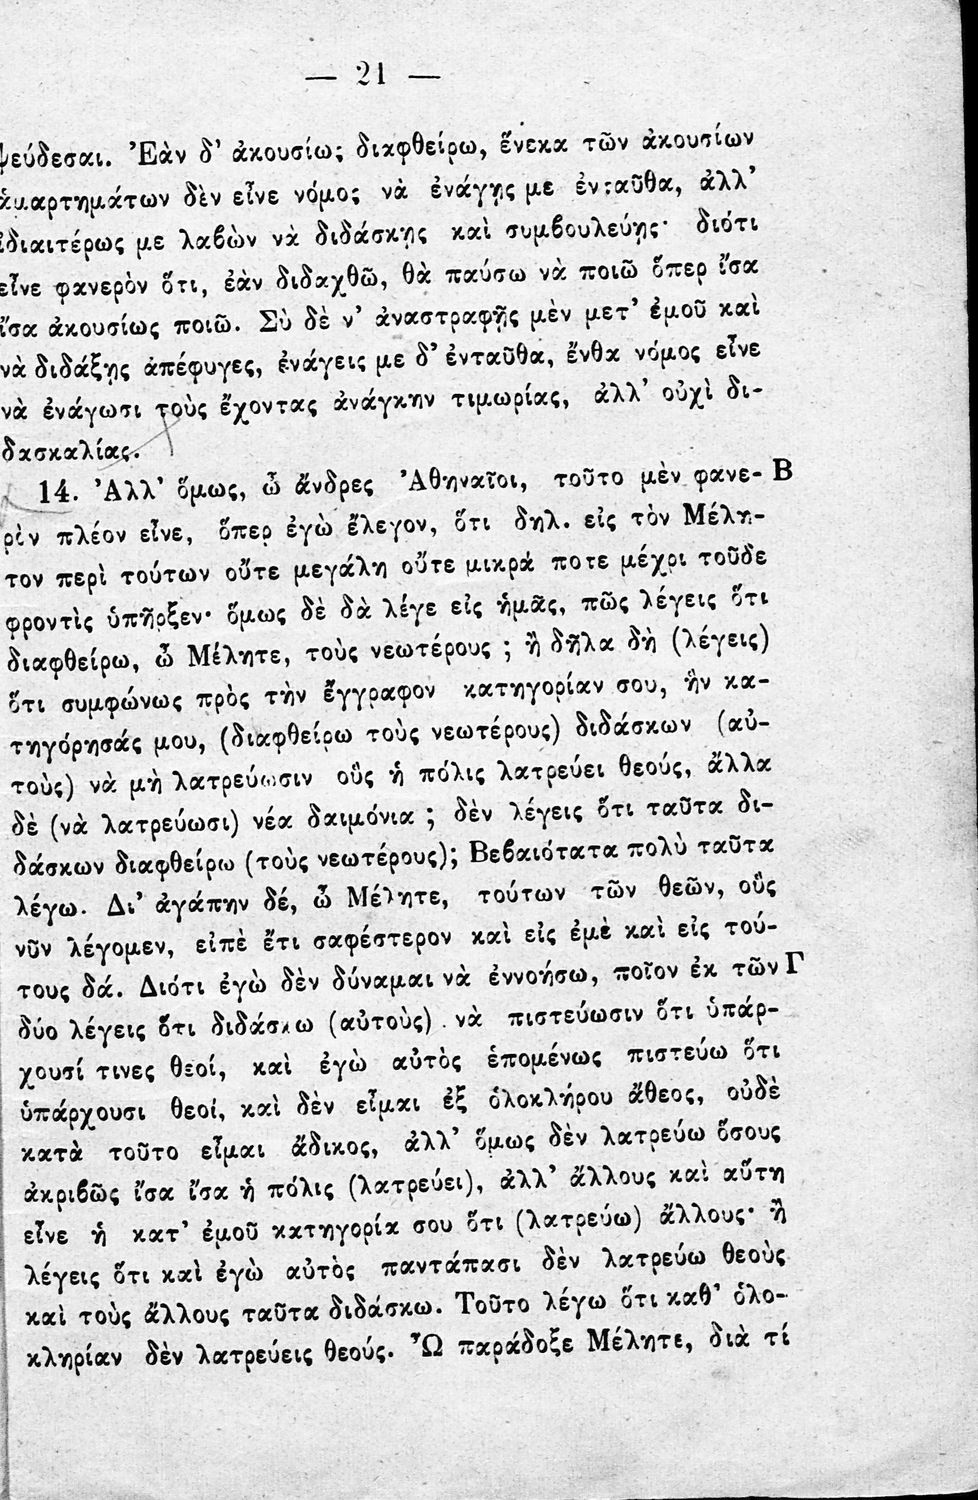 — 21 —
ψεύδεσαι. Ἐὰν δ’ ἀκουσίως διαφθείρω, ἕνεκα τῶν ἀκουσίων
ἁμαρτημάτων δὲν εἶνε νόμος νὰ ἐνάγῃς με ἐνταῦθα, ἀλλ’
ἰδιαιτέρως με λαβὼν νὰ διδάσκῃς καὶ συμβουλεύῃς· διότι
εἶνε φανερὸν ὅτι, ἐὰν διδαχθῶ, θὰ παύσω νὰ ποιῶ ὅπερ ἴσα
ἴσα ἀκουσίως ποιῶ. Σὺ δὲ ν’ ἀναστραφῇς μὲν μετ’ ἐμοῦ καὶ
νὰ διδάξῃς ἀπέφυγες, ἐνάγεις με δ’ ἐνταῦθα, ἔνθα νόμος εἶνε
νὰ ἐνάγωσι τοὺς ἔχοντας ἀνάγκην τιμωρίας, ἀλλ’ οὐχὶ δι-
δασκαλίας.
14. Ἀλλ’ ὅμως, ὦ ἄνδρες Ἀθηναῖοι, τοῦτο μὲν φανε- Β
ρὸν πλέον εἶνε, ὅπερ ἐγὼ ἔλεγον, ὅτι δηλ. εἰς τὸν Μέλη-
τον περὶ τούτων οὔτε μεγάλη οὔτε μικρά ποτε μέχρι τοῦδε
φροντὶς ὑπῆρξεν· ὅμως δὲ δὰ λέγε εἰς ἡμᾶς, πῶς λέγεις ὅτι
διαφθείρω, ὦ Μέλητε, τοὺς νεωτέρους ; ἢ δῆλα δὴ (λέγεις)
ὅτι συμφώνως πρὸς τὴν ἔγγραφον κατηγορίαν σου, ἣν κα-
τηγόρησάς μου, (διαφθείρω τοὺς νεωτέρους) διδάσκων (αὐ-
τοὺς) νὰ μὴ λατρεύωσιν οὓς ἡ πόλις λατρεύει θεούς, ἄλλα
δὲ (νὰ λατρεύωσι) νέα δαιμόνια ; δὲν λέγεις ὅτι ταῦτα δι-
δάσκων διαφθείρω (τοὺς νεωτέρους); Βεβαιότατα πολὺ ταῦτα
λέγω. Δι’ ἀγάπην δέ, ὦ Μέλητε, τούτων τῶν θεῶν, οὓς
νῦν λέγομεν, εἰπὲ ἔτι σαφέστερον καὶ εἰς ἐμὲ καὶ εἰς τού-
τους δά. Διότι ἐγὼ δὲν δύναμαι νὰ ἐννοήσω, ποῖον ἐκ τῶν Γ
δύο λέγεις ὅτι διδάσκω (αὐτοὺς) νὰ πιστεύωσιν ὅτι ὑπάρ-
χουσί τινες θεοί, καὶ ἐγὼ αὐτὸς ἑπομένως πιστεύω ὅτι
ὑπάρχουσι θεοί, καὶ δὲν εἶμαι ἐξ ὁλοκλήρου ἄθεος, οὐδὲ
κατὰ τοῦτο εἶμαι ἄδικος, ἀλλ’ ὅμως δὲν λατρεύω ὅσους
ἀκριβῶς ἴσα ἴσα ἡ πόλις (λατρεύει), ἀλλ’ ἄλλους καὶ αὕτη
εἶνε ἡ κατ’ ἐμοῦ κατηγορία σου ὅτι (λατρεύω) ἄλλους· ἢ
λέγεις ὅτι καὶ ἐγὼ αὐτὸς παντάπασι δὲν λατρεύω θεοὺς
καὶ τοὺς ἄλλους ταῦτα διδάσκω. Τοῦτο λέγω ὅτι καθ’ ὁλο-
κληρίαν δὲν λατρεύεις θεούς. Ὦ παράδοξε Μέλητε, διὰ τί